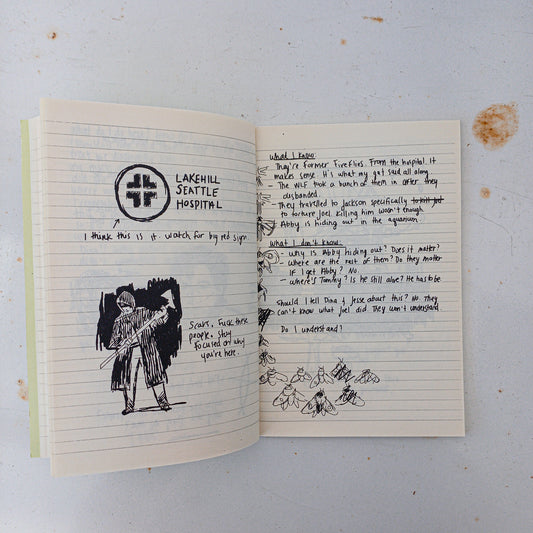 LAKEHILL
SEATTLE
HOSPITAL
I think this is it. Watch for big red sign.
Scars. Fuck these
people. Stay
focused on why
you're here.
What I know:
- They're former Fireflies. From the hospital. It
makes sense. It's what my gut said all along.
- The WLF took a bunch of them in after they
disbanded.
- They travelled to Jackson specifically to kill Joel
to torture Joel. Killing him wasn't enough
- Abby is hiding out in the aquarium
What I don't know:
- Why is Abby hiding out? Does it matter?
- Where are the rest of them? Do they matter
if I get Abby? No.
- Where's Tommy? Is he still alive? He has to be
Should I tell Dina & Jesse about this? No. They
can't know what Joel did. They won't understand.
Do I understand?